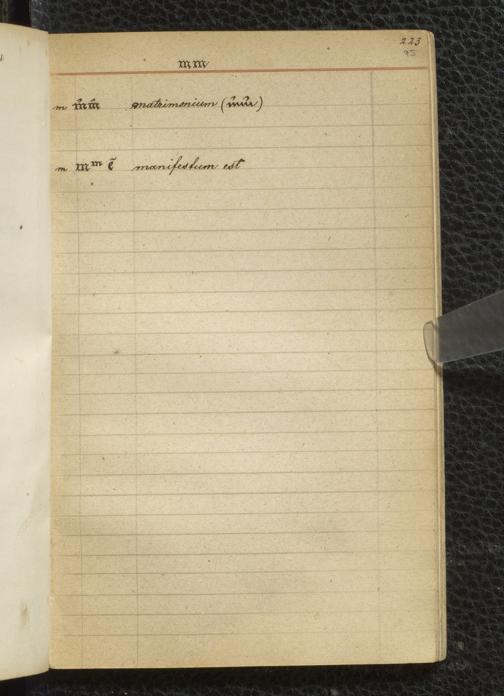 223
95
mm
m m̂m̂ matrimonium (m̂m̂)
m mᵐ ē manifestum est